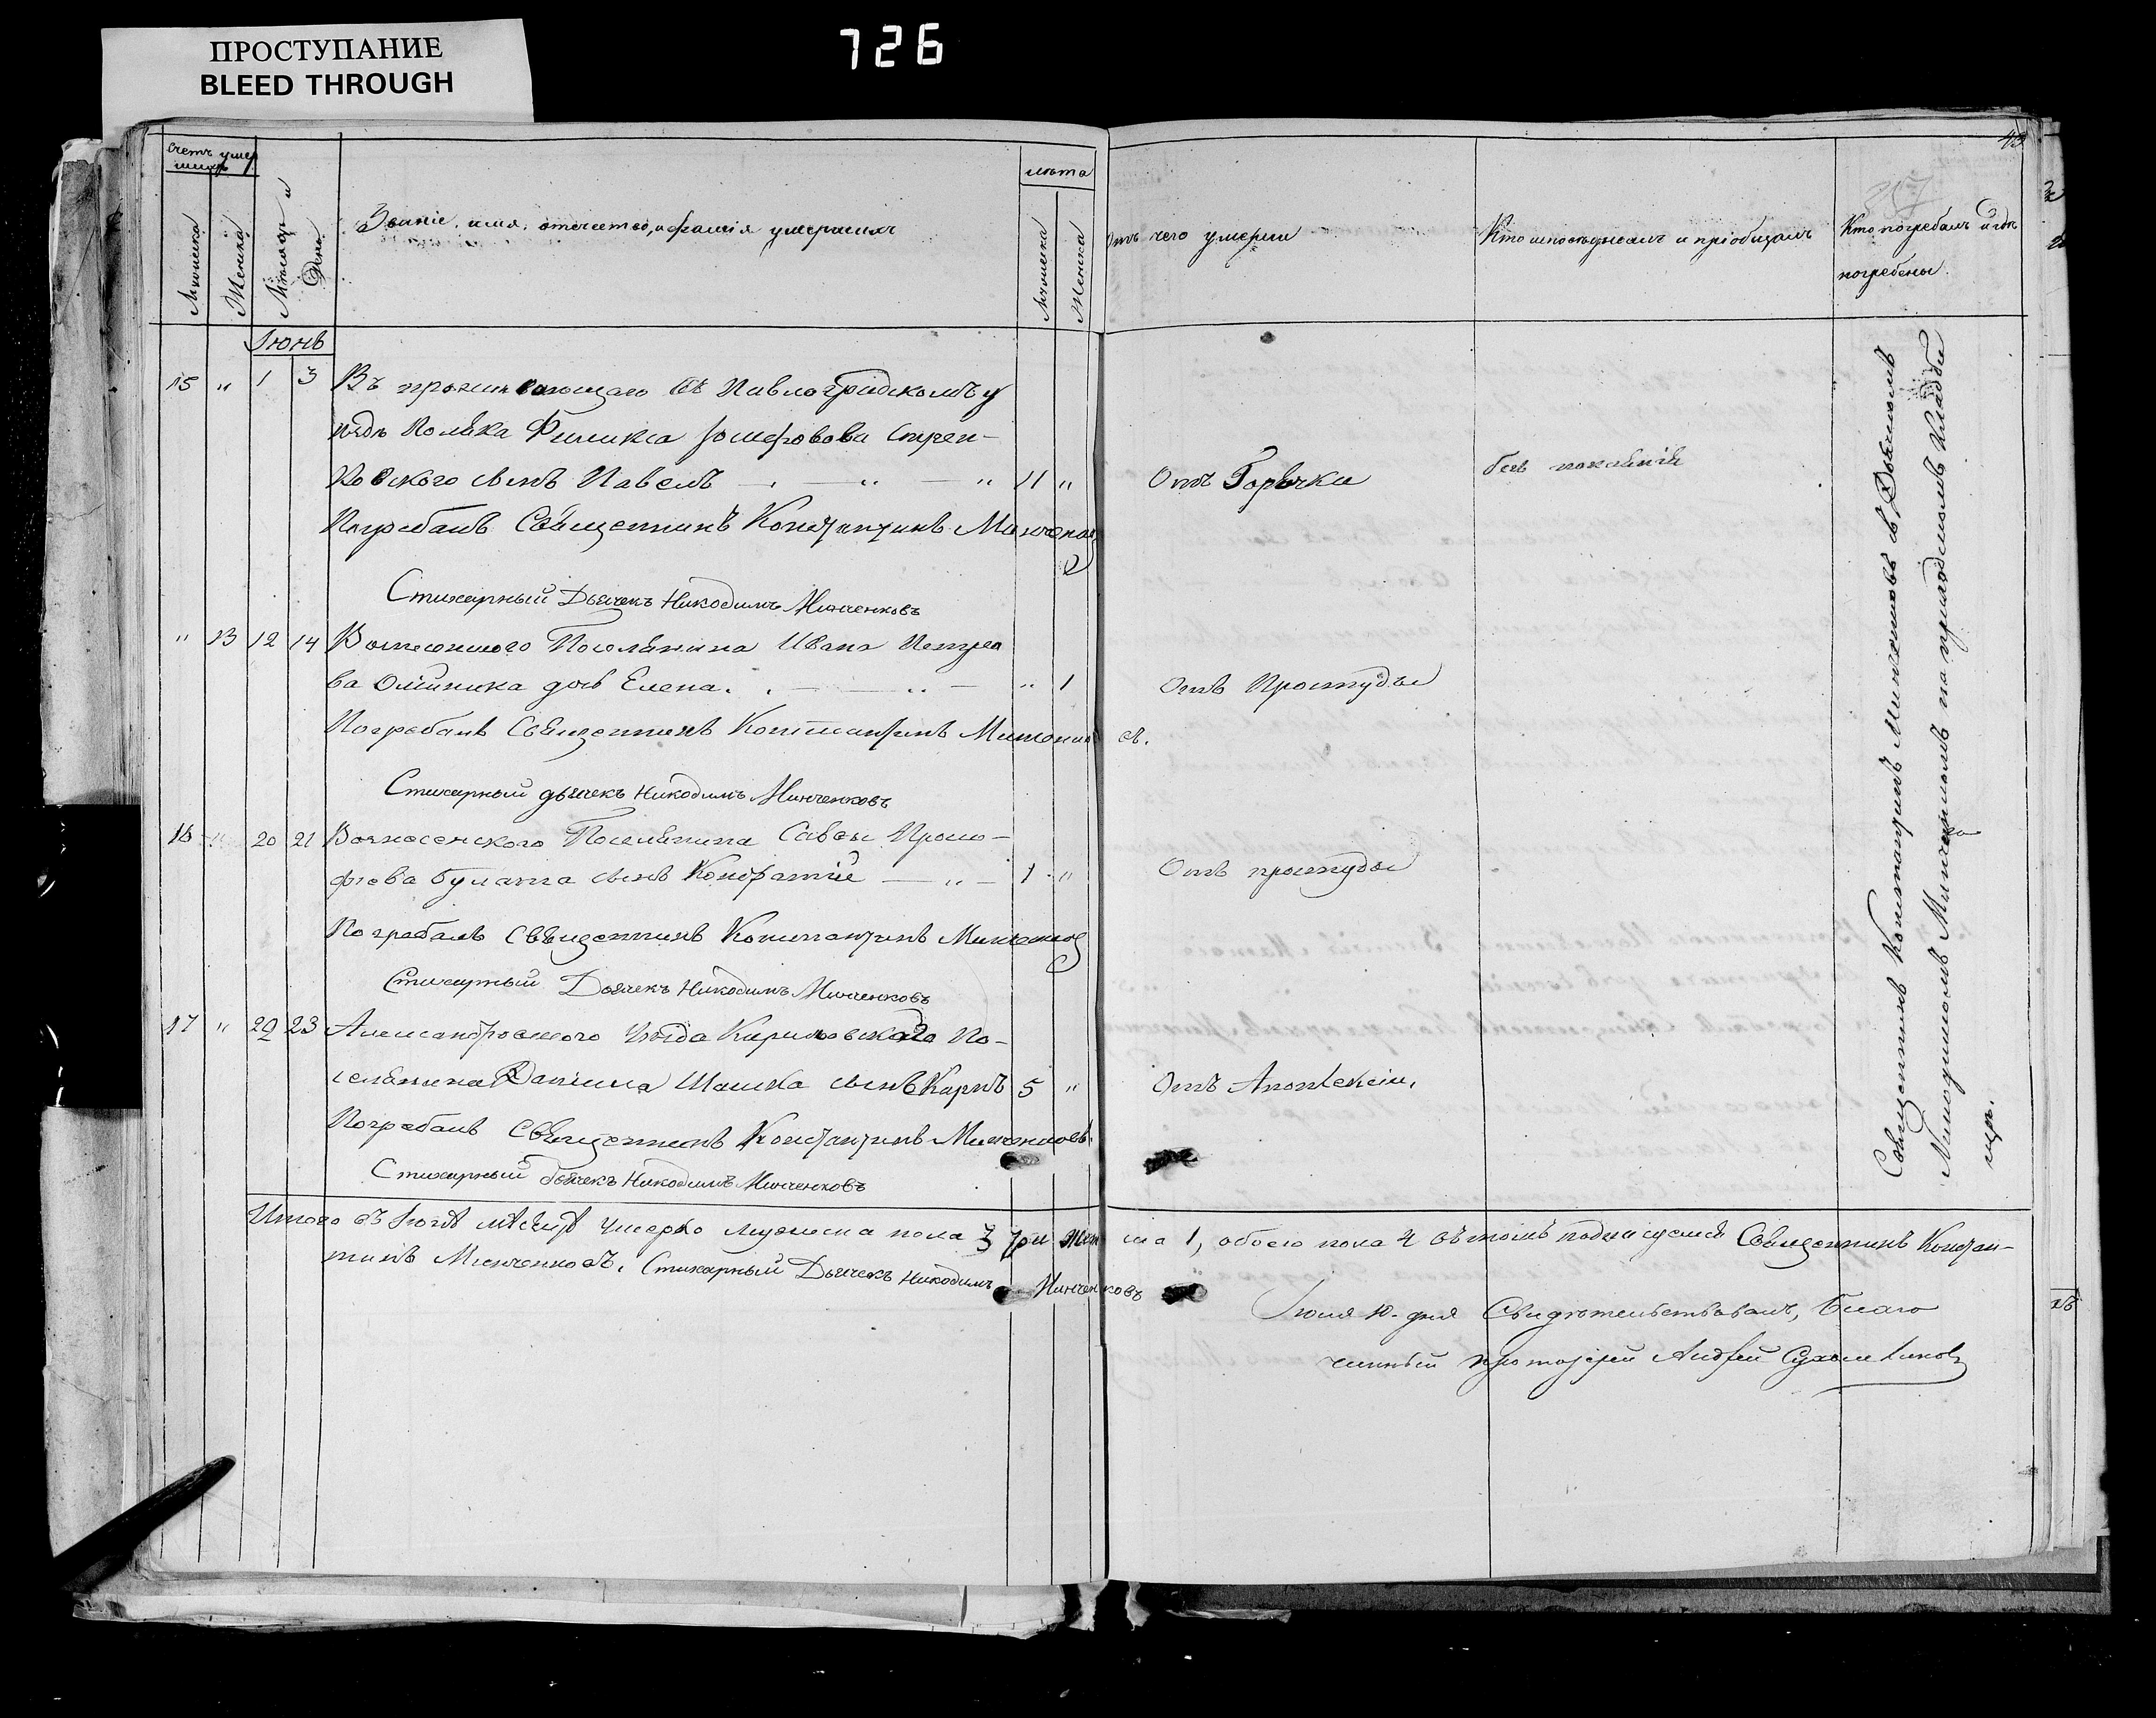 ПРОСТУПАНИЕ
BLEED THROUGH
726
43
Счетъ умер
шихъ
Мужеска
Женска
Мѣсяцъ и
День
Званіе, имя, отчество, и фамілія умершихъ
лѣта
Мужеска
Женска
Отъ чего умерли
Кто исповѣдывалъ и пріобщалъ
Кто погребалъ и гдѣ
погребены.
Іюнь
15 " 1 3 Въ проживающаго въ Павлоградскомъ у
ѣздѣ Поляка Филикса
сынъ Павелъ — " — " 11 "
Отъ Горячки
безъ покаянія
Погребалъ Священникъ Константинъ Минченковъ
Стихарный Дьячекъ Никодимъ Минченковъ
" 13 12 14 Вознесенского Поселянина Ивана Петро
ва Олійника дочь Елена. — " — " 1
Отъ Простуды
Погребалъ Священникъ Константинъ Минченковъ.
Стихарный дьячекъ Никодимъ Минченковъ
16 " 20 21 Вознесенского Поселянина Савы Проко-
фіева Булатка сынъ Кондратій — " — 1 "
Отъ простуды
Погребалъ Священникъ Константинъ Минченковъ
Стихарный Дьячекъ Никодимъ Минченковъ
17 " 22 23 Александровского Уѣзда Кириловскаго По-
селянина Даніила Шашка сынъ Карпъ 5 "
Отъ Апоплексіи.
Погребалъ Священникъ Константинъ Минченковъ.
Стихарный дьячекъ Никодимъ Минченковъ
Священникъ Константинъ Минченковъ съ Дьячкомъ
Никодимомъ Минченковымъ на приходскомъ кладби
щѣ.
Итого въ Іюнѣ мѣсяцѣ умерло мужеска пола 3 три женска 1, обоего пола 4 въ томъ подписуемся Священникъ Констан-
тинъ Минченковъ. Стихарный Дьячекъ Никодимъ Минченковъ
Іюля 10. дня Свидѣтельствовалъ, Благо
чинный протоіерей Андрей Сухомлиновъ